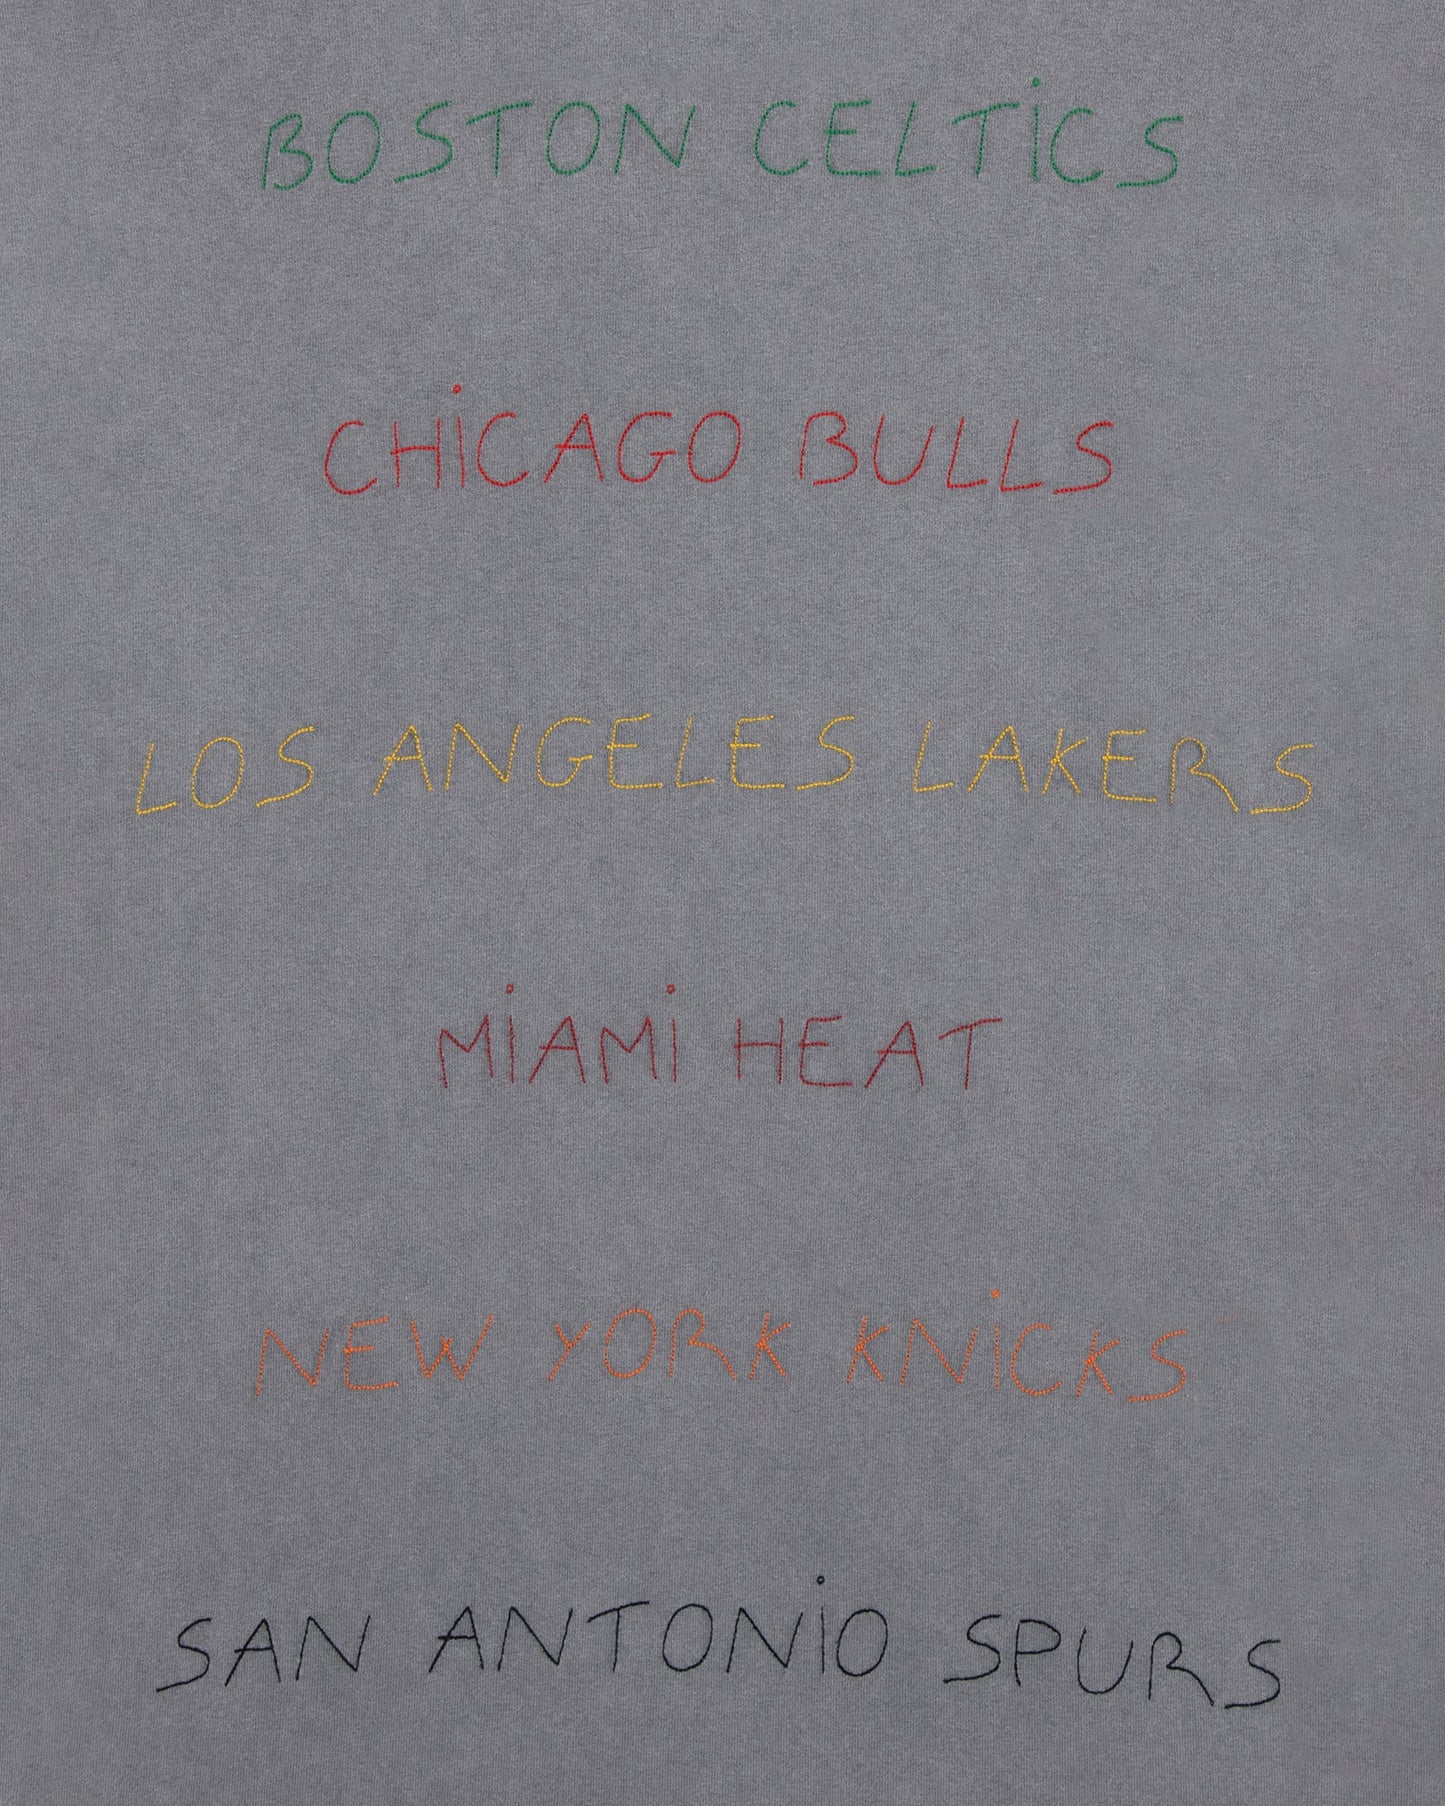 BOSTON CELTiCS
CHiCAGO BULLS
LOS ANGELES LAKERS
MiAMi HEAT
NEW YORK KNiCKS
SAN ANTONiO SPURS